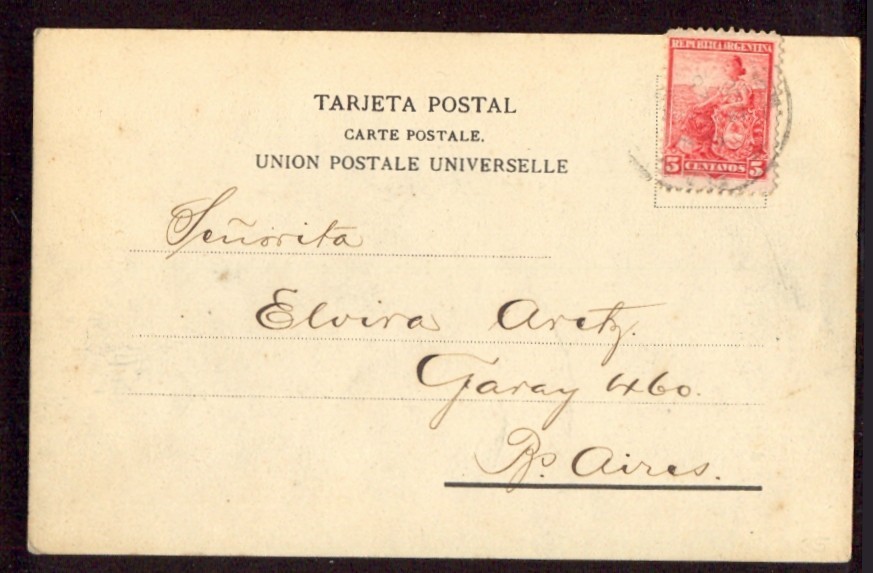 REPUBLICA ARGENTINA
5 CENTAVOS 5
TARJETA POSTAL
CARTE POSTALE.
UNION POSTALE UNIVERSELLE
Señorita
Elvira Aretz.
Garay 460.
Bs. Aires.